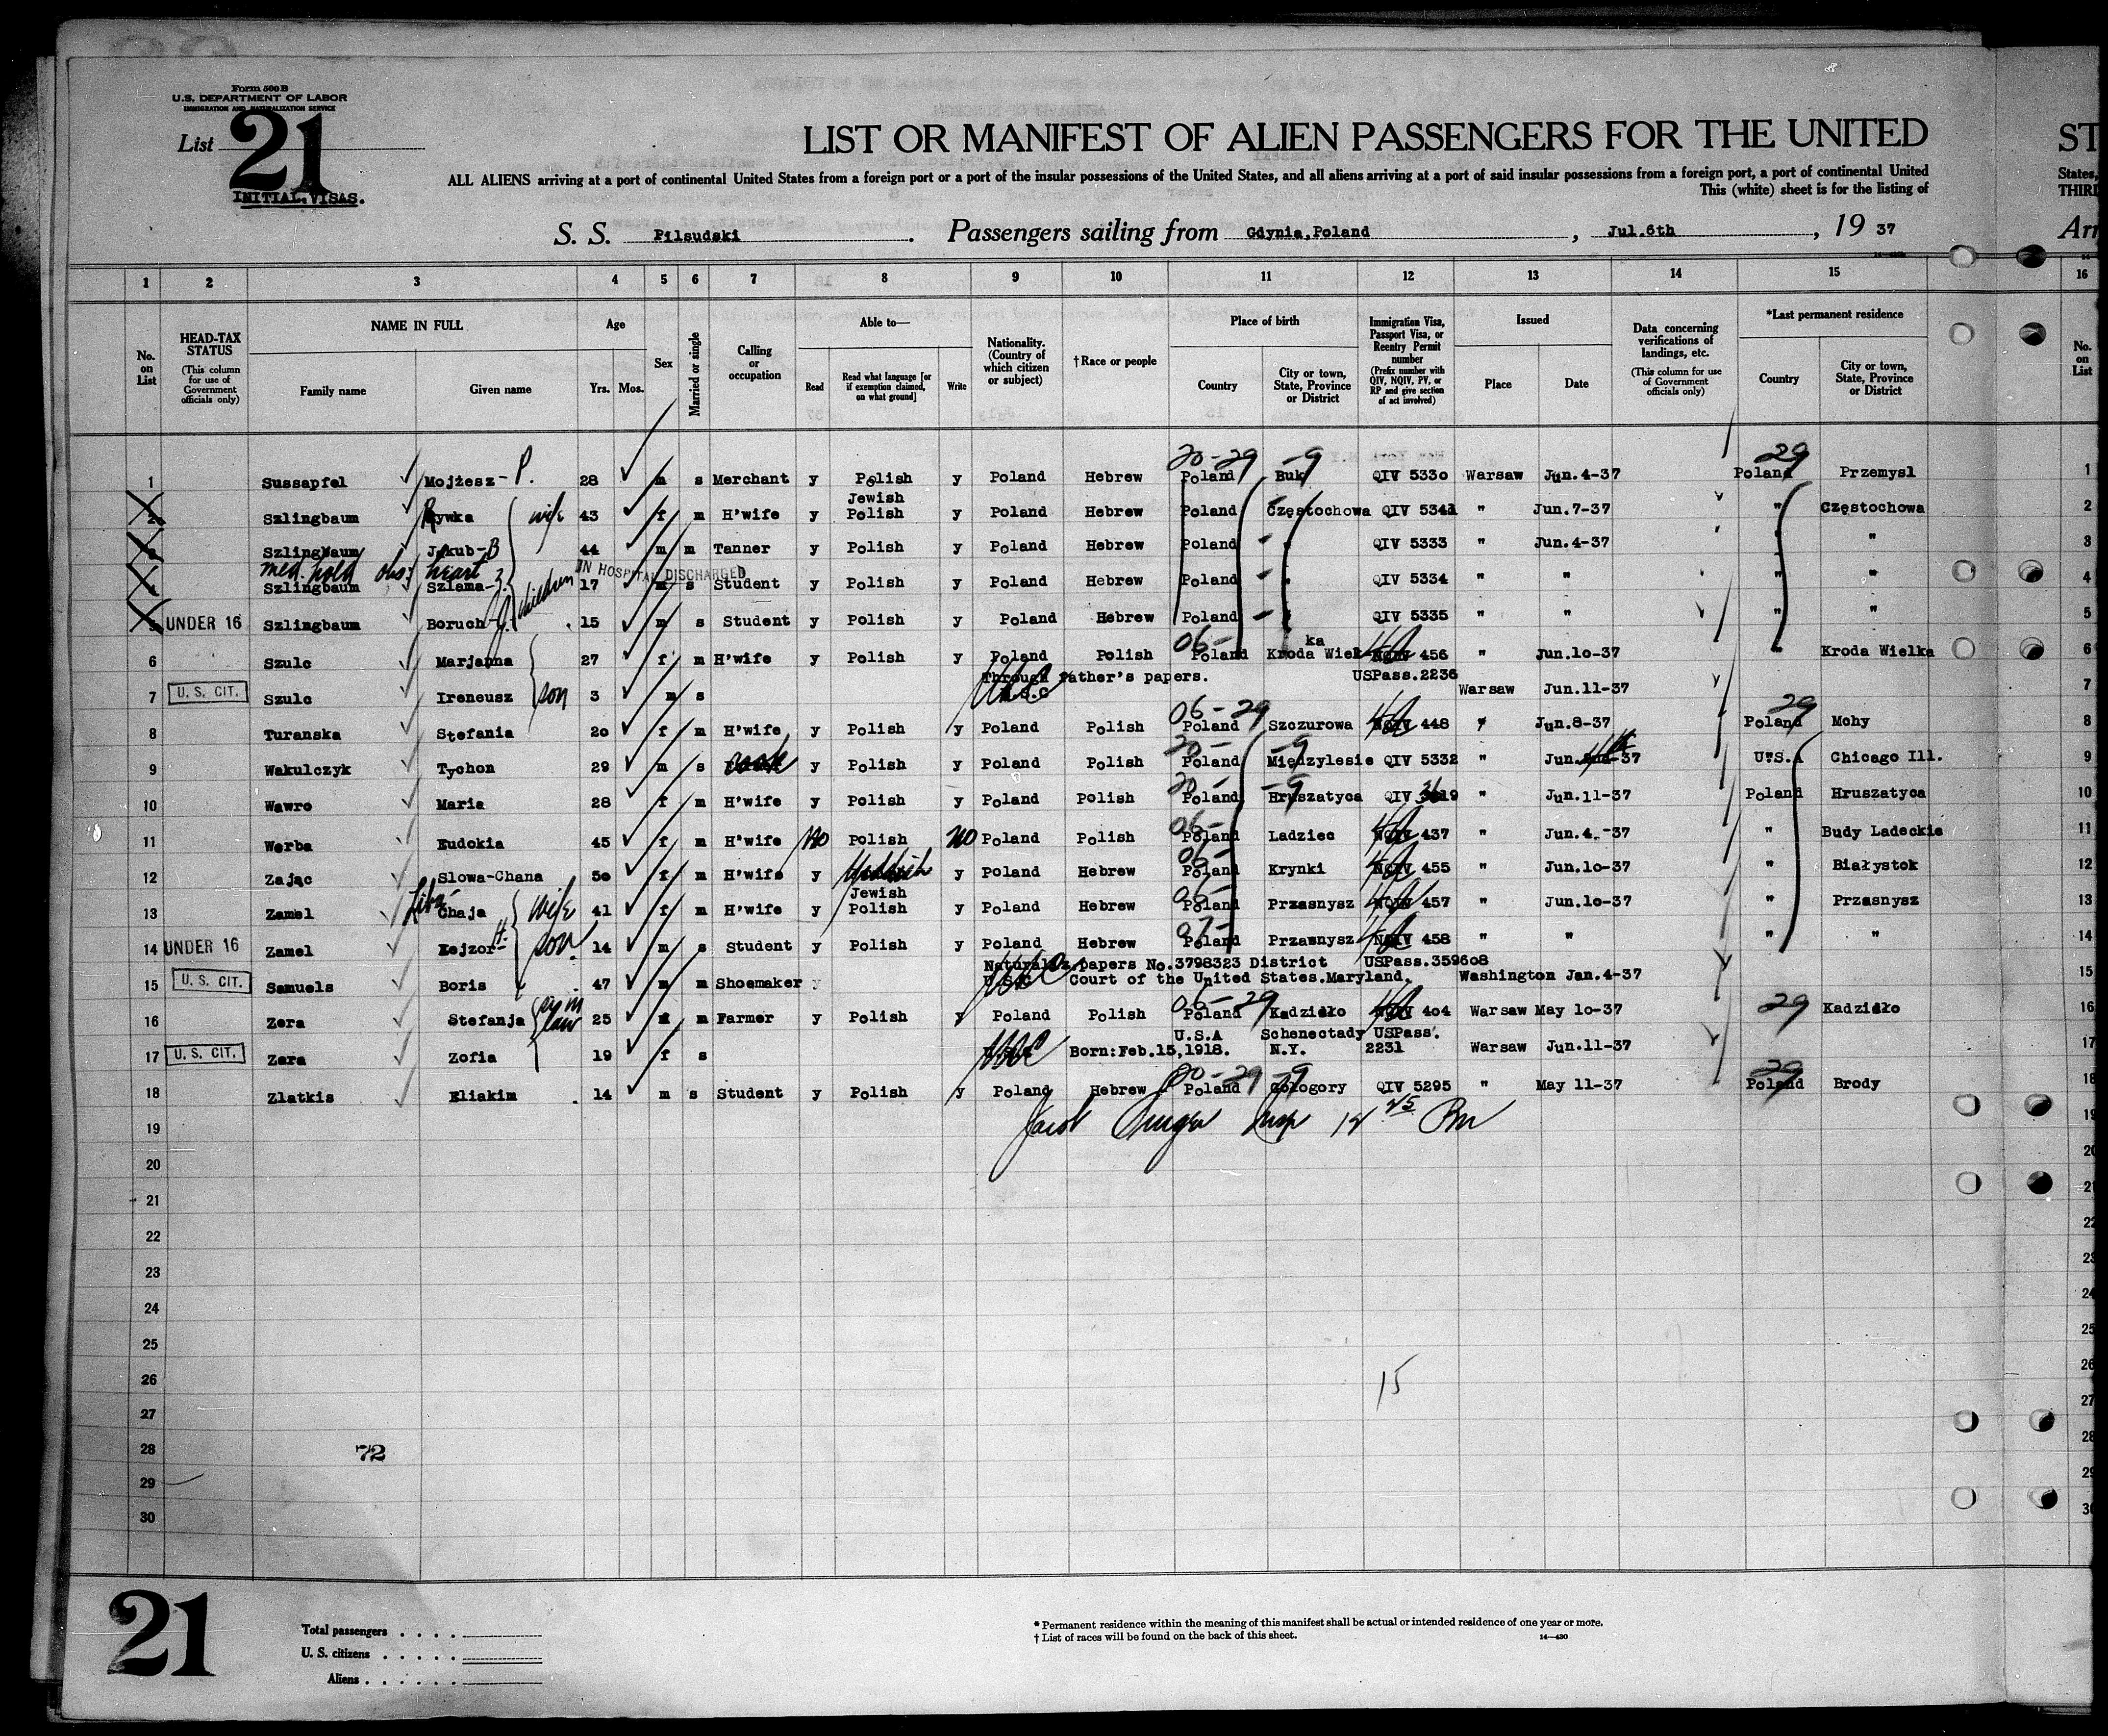 Form 500 B
U.S. DEPARTMENT OF LABOR
IMMIGRATION AND NATURALIZATION SERVICE
List 21
INITIAL VISAS.
LIST OR MANIFEST OF ALIEN PASSENGERS FOR THE UNITED ST
ALL ALIENS arriving at a port of continental United States from a foreign port or a port of the insular possessions of the United States, and all aliens arriving at a port of said insular possessions from a foreign port, a port of continental United States,
This (white) sheet is for the listing of THIRD
S. S. Pilsudski. Passengers sailing from Gdynia, Poland, Jul.6th, 19 37 Arr
1 2 3 4 5 6 7 8 9 10 11 12 13 14 15 16
No. on List
HEAD-TAX STATUS (This column for use of Government officials only)
NAME IN FULL
Family name Given name
Age
Yrs. Mos.
Sex
Married or single
Calling or occupation
Able to—
Read Read what language [or if exemption claimed, on what ground] Write
Nationality. (Country of which citizen or subject)
† Race or people
Place of birth
Country City or town, State, Province or District
Immigration Visa, Passport Visa, or Reentry Permit number (Prefix number with QIV, NQIV, PV, or RP and give section of act involved)
Issued
Place Date
Data concerning verifications of landings, etc. (This column for use of Government officials only)
*Last permanent residence
Country City or town, State, Province or District
No. on List
20-29 -9 29
1 Sussapfel Mojżesz- P. 28 m s Merchant y Polish y Poland Hebrew Poland Buk QIV 5330 Warsaw Jun.4-37 Poland Przemysl 1
Jewish
2 Szlingbaum Rywka wife 43 f m H'wife y Polish y Poland Hebrew Poland Częstochowa QIV 5341 " Jun.7-37 " Częstochowa 2
Szlingbaum Jakub-B 44 m m Tanner y Polish y Poland Hebrew Poland QIV 5333 " Jun.4-37 " " 3
med. hold obs: heart IN HOSPITAL DISCHARGED
Szlingbaum Szlama- 17 m s Student y Polish y Poland Hebrew Poland QIV 5334 " " " " 4
children
5 UNDER 16 Szlingbaum Boruch 15 m s Student y Polish y Poland Hebrew Poland QIV 5335 " " " " 5
06- ka
6 Szulc Marjanna 27 f m H'wife y Polish y Poland Polish Poland Kroda Wiel 456 " Jun.10-37 " Kroda Wielka 6
Through father's papers. USPass.2236
7 U. S. CIT. Szulc Ireneusz son 3 m s Warsaw Jun.11-37 7
06-29 29
8 Turanska Stefania 20 f m H'wife y Polish y Poland Polish Poland Szczurowa 448 " Jun.8-37 Poland Mchy 8
20- -9
9 Wakulczyk Tychon 29 m s y Polish y Poland Polish Poland Międzylesie QIV 5332 " Jun. -37 U.S. Chicago Ill. 9
20- -9
10 Wawro Maria 28 f m H'wife y Polish y Poland Polish Poland Hruszatyca QIV " Jun.11-37 Poland Hruszatyca 10
06-
11 Werba Eudokia 45 f m H'wife no Polish no Poland Polish Poland Ladziec 437 " Jun.4.-37 " Budy Ladeckie 11
06-
12 Zając Slowa-Chana 50 f m H'wife y y Poland Hebrew Poland Krynki 455 " Jun.10-37 " Białystok 12
Jewish
13 Zamel Liba Chaja wife 41 f m H'wife y Polish y Poland Hebrew Poland Przasnysz 457 " Jun.10-37 " Przasnysz 13
14 UNDER 16 Zamel Kejzor- H. son 14 m s Student y Polish y Poland Hebrew Poland Przawnysz 458 " " " " 14
Naturaliz.papers No.3798323 District USPass.359608
15 U. S. CIT. Samuels Boris 47 m m Shoemaker y Court of the United States.Maryland. Washington Jan.4-37 15
06-29 29
16 Zera Stefanja law 25 m Farmer y Polish y Poland Polish Poland Kadzidło 404 Warsaw May 10-37 Kadzidło 16
U.S.A Schenectady USPass.
17 U. S. CIT. Zera Zofia 19 f s Born:Feb.15,1918. N.Y. 2231 Warsaw Jun.11-37 17
-29 -9 29
18 Zlatkis Eliakim 14 m s Student y Polish y Poland Hebrew Poland Gologory QIV 5295 " May 11-37 Poland Brody 18
Jacob Insp 12 45 Pm
19 19
20 20
21 21
22 22
23 23
24 24
25 25
26 26
15
27 27
28 72 28
29 29
30 30
21
Total passengers . . . .
U. S. citizens . . . . .
Aliens . . . . . .
* Permanent residence within the meaning of this manifest shall be actual or intended residence of one year or more.
† List of races will be found on the back of this sheet.
14—430